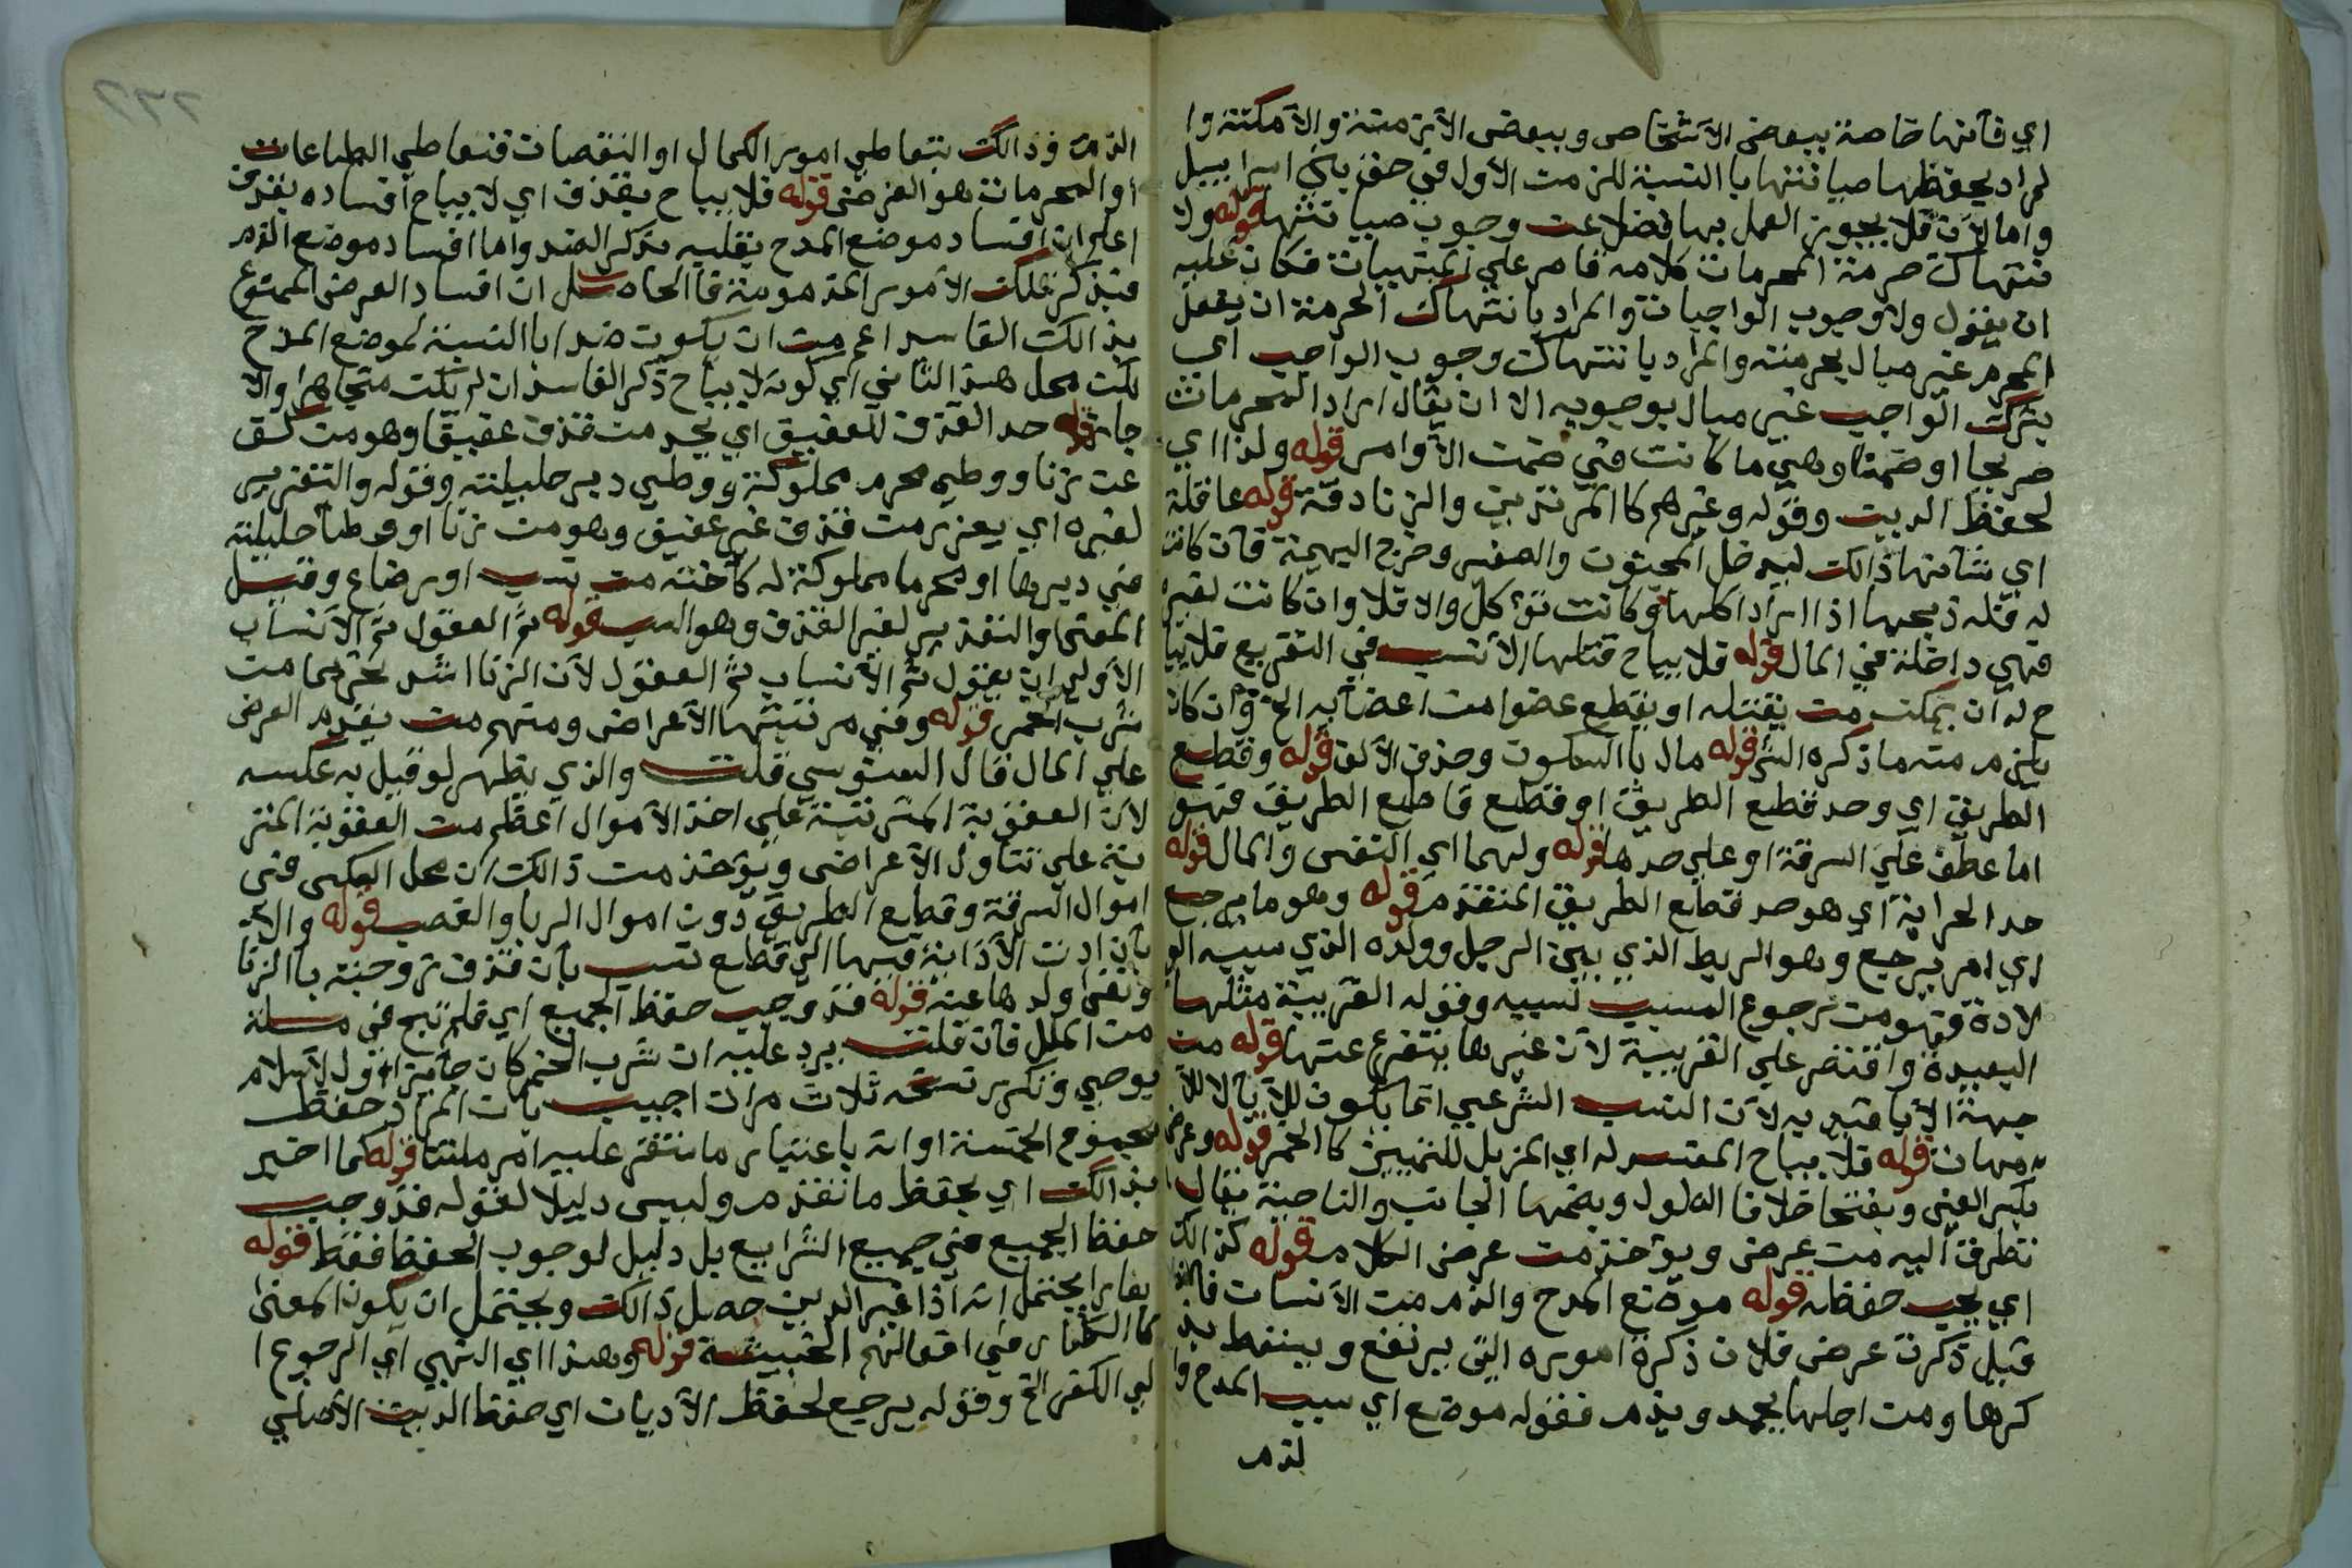 اي فانها خاصة ببعض الاشخاص وببعض الازمنة والامكنة وا
لمراد بحفظها صيانتها بالنسبة للزمن الأول في حق بني اسراييل
واما الآن فلا يجوز العمل بها فضلا عن وجوب صيانتها قوله ولا
نتهاك حرمة المحرمات كلامه قاصر علي المنهيات فكان عليه
ان يقول ولا وجوب الواجبات والمراد بانتهاك الحرمة ان يفعل
المحرم غير مبال بحرمته والمراد بانتهاك وجوب الواجب اي
يترك الواجب غير مبال بوجوبه الا ان يقال اراد المحرمات
صريحا او ضمنا وهي ما كانت في ضمن الأوامر قوله ولذا اي
لحفظ الدين وقوله وغيرهم كالمرتدين والزنادقة قوله عاقلة
اي شانها ذالك ليدخل المجنون والصغير وخرج البهيمة فان كانت
له فله ذبحها اذا اراد اكلها وكانت تؤكل والا فلا وان كانت لغيره
فهي داخلة في المال قوله فلا يباح قتلها الأنسب في التفريع فلا يبا
ح له ان يمكن من يقتله او يقطع عضوا من اعضايه الخ وان كان
يلزم منه ما ذكره الش قوله مال بالسكون وحذف الألف قوله وقطع
الطريق اي وحد قطع الطريق او قطع قاطع الطريق فهو
اما عطف علي السرقة او علي حدها قوله ولهما اي النفس والمال قوله
حد الحرابة اي هو حد قطاع الطريق المتقدم قوله وهو ما يرجع
اي امر يرجع وهو الربط الذي بين الرجل وولده الذي سببه الو
لادة فهو من رجوع المسبب لسببه وقوله القريبة مثلها
البعيدة واقتصر علي القريبة لأن غيرها يتفرع عنها قوله من
جهة الأباء قيد به لأن النسب الشرعي انما يكون للآبا لا للأ
مهات قوله فلا يباح المفسد له اي المزيل للتمييز كالخمر قوله وعرض
بكسر العين وبفتحها خلاف الطول وبضمها الجانب والناحية يقال
نظرت اليه من عرض ويؤخذ من عرض الكلام قوله كذالك
اي يجب حفظه قوله موضع المدح والذم من الأنسان فاذا
قيل ذكرت عرض فلان ذكرة اموره التي يرتفع ويسقط بذ
كرها ومن اجلها يحمد ويذم فقوله موضع اي سبب المدح وا
لذم
الذم وذالك بتعاطي امور الكمال او النقصان فتعاطي الطاعات
او المحرمات هو العرض قوله فلا يباح بقذف اي لا يباح افساده بقذف
اعلم ان افساد موضع المدح بقلبه بذكر الضد واما افساد موضع الذم
فبذكر تلك الأمور المذمومة فالحاصل ان افساد العرض الممنوع
بذالك الفاسد اعم من ان يكون ضدا بالنسبة لموضع المدح
لكن محل هذا الثاني اي كونه لا يباح ذكر الفاسد ان لم يكن متجاهرا والا
جاز قوله حد القذف للعفيف اي يحد من قذف عفيفا وهو من كف
عن زنا ووطي محرم مملوكة ووطي دبر حليلته وقوله والتعزير
لغيره اي يعزر من قذف غير عفيف وهو من زنا او وطيا حليلته
في دبرها او محرما مملوكة له كأخته من نسب او رضاع وقيل
المعنى والتعزير لغير القذف وهو السب قوله ثم العقول ثم الأنساب
الأولى ان يقول ثم الأنساب ثم العقول لأن الزنا اشد تحريما من
شرب الخمر قوله وفي مرتبتها الأعراض ومنهم من يقدم العرض
علي المال قال السنوسي قلت والذي يظهر لو قيل به عكسه
لأن العقوبة المترتبة علي اخذ الأموال اعظم من العقوبة المتر
تبة علي تناول الأعراض ويؤخذ من ذالك ان محل العكس في
اموال السرقة وقطاع الطريق دون اموال الربا والغصب قوله والا
بان ادت الأذاية فيها الي قطع نسب بأن قذف زوجته بالزنا
ونفى ولدها عنه قوله قد وجب حفظ الجميع اي فلم تبح في مسلة
من الملل فان قلت يرد عليه ان شرب الخمر كان جايزا اول الأسلام
بوحي وتكرر نسخه ثلاث مرات اجيب بان المراد حفظ
مجموع الخمسة او انه باعتبار ما استقر عليه امر ملتنا قوله كما اخبر
بذالك اي بحفظ ما تقدم وليس دليلا لقوله قد وجب
حفظ الجميع في جميع الشرايع بل دليل لوجوب الحفظ فقط قوله
يحتمل انه اذا غير الدين حصل ذالك ويحتمل ان يكون المعنى
كالكفار في افعالهم الخبيثة قوله وهذا اي النهي اي الرجوع ا
لي الكفر الخ وقوله يرجع لحفظ الأديان اي حفظ الدين الأصلي